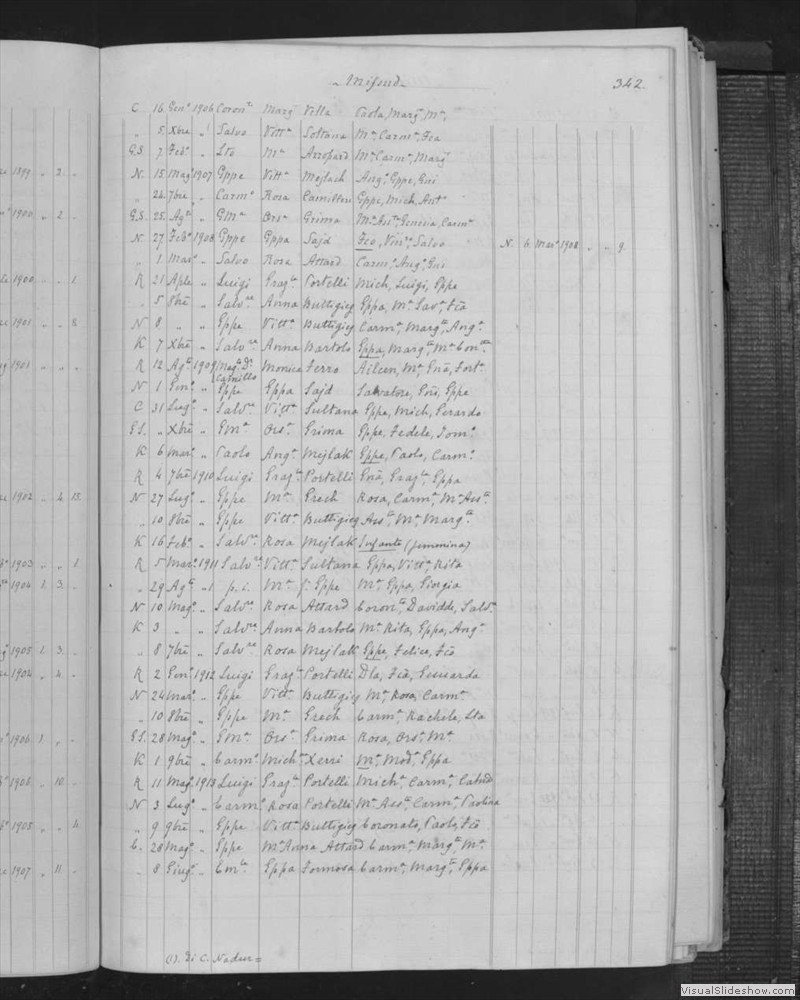 Mifsud 342.
C 16 Genº 1906 Coronª Margª Vella Paola, Margª Mª,
" 5 Xbre " Salvo Vittª Sultana Mª, Carmª, Fca
G.S. 7 Febº " Mª Mª, Carmª, Margª
N. 15 Magº 1907 Gppe Vittª Mejlach Angª, Gppe, Gni
" 24 7bre " Carmº Rosa Camilleri Gppe, Mich, Antº
G.S. 25 Agº " GMª Orsª Grima Mª Assª, Carmª
N 27 Febº 1908 Gppe Gppa Sajd Fco, Vinc, Salvo N. 6. Marº 1908 " " 9.
" 1 Marº " Salvo Rosa Attard Carmª, Angª, Gni
R 21 Aple " Luigi Grazª Portelli Mich, Luigi, Gppe
" 5 8bre " Salvre Anna Buttigieg Gppa, Mª, Salvª, Fca
N 8 " " Gppe Vittª Buttigieg Carmª, Margª, Angª
K 7 Xbre " Salvre Anna Bartolo Gppa, Margª, Mª Conne
R 12 Agº 1909 Magº Dr Camillo Monica Ferro Aileen, Mª
N 1 Genº " Gppe Gppa Sajd Salvatore, Gni, Gppe
C 31 Lugº " Salvre Vittª Sultana Gppe, Mich, Gerardo
G.S. " Xbre " GMª Orsª Grima Gppe, Fedele, Domº
K 6 Marº " Paolo Angª Mejlak Gppe, Paolo, Carmº
R 4 7bre 1910 Luigi Grazª Portelli Grazª, Gppa
N 27 Lugº " Gppe Mª Grech Rosa, Carmª, Mª Assª
" 10 8bre " Gppe Vittª Buttigieg Assª, Mª, Margª
K 16 Febº " Salvre Rosa Mejlak Infante (femenina)
R 5 Marº 1911 Salvre Vittª Sultana Gppa, Vittª, Rita
" 29 Agº " p. i. Mª f. Gppe Mª, Gppa, Giorgia
N 10 Magº " Salvre Rosa Attard Coronº, Davidde, Salvº
K 3 " " Salvre Anna Bartolo Mª, Rita, Gppa, Angª
" 8 7bre " Salvre Rosa Mejlak Gppe, Felice, Fco
R 2 Genº 1912 Luigi Grazª Portelli Fca, Gennarda
N 24 Marº " Gppe Vittª Buttigieg Mª, Rosa, Carmª
" 10 8bre " Gppe Mª Grech Carmª, Rachela
G.S. 28 Magº " GMª Orsª Grima Rosa, Orsª, Mª
K 1 9bre " Carmº Michª Xerri Mª, Modª, Gppa
R 11 Magº 1913 Luigi Grazª Portelli Michª, Carmª
N 3 Lugº " Carmº Rosa Portelli Mª Assª, Carmª, Paolina
" 9 9bre " Gppe Vittª Buttigieg Coronato, Paolo, Fco
C. 28 Magº " Gppe Mª Anna Attard Carmª, Margª, Mª
" 8 Giugº " Emle Gppa Formosa Carmª, Margª, Gppa
(1). Di C. Nadur =
1899 2
1900 2
1900 1.
1901 8
1901
1902 4 15
1903 1
1904 1. 3
1905 1. 3
1904 4
1906 1.
1906 10
1905 4
1907 11
VisualSlideshow.com